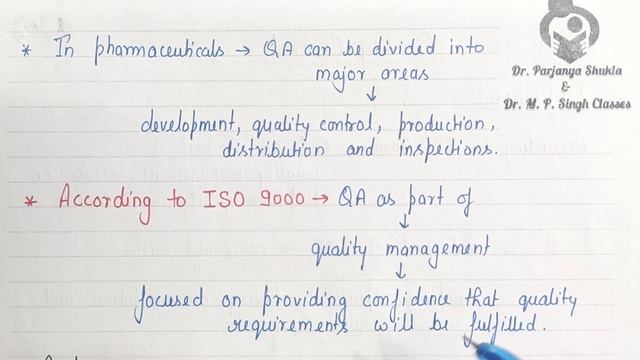 * In pharmaceuticals → QA can be divided into
major areas
↓
development, quality control, production,
distribution and inspections.
* According to ISO 9000 → QA as part of
↓
quality management
↓
focused on providing confidence that quality
requirements will be fulfilled.
Dr. Parjanya Shukla
&
Dr. M. P. Singh Classes